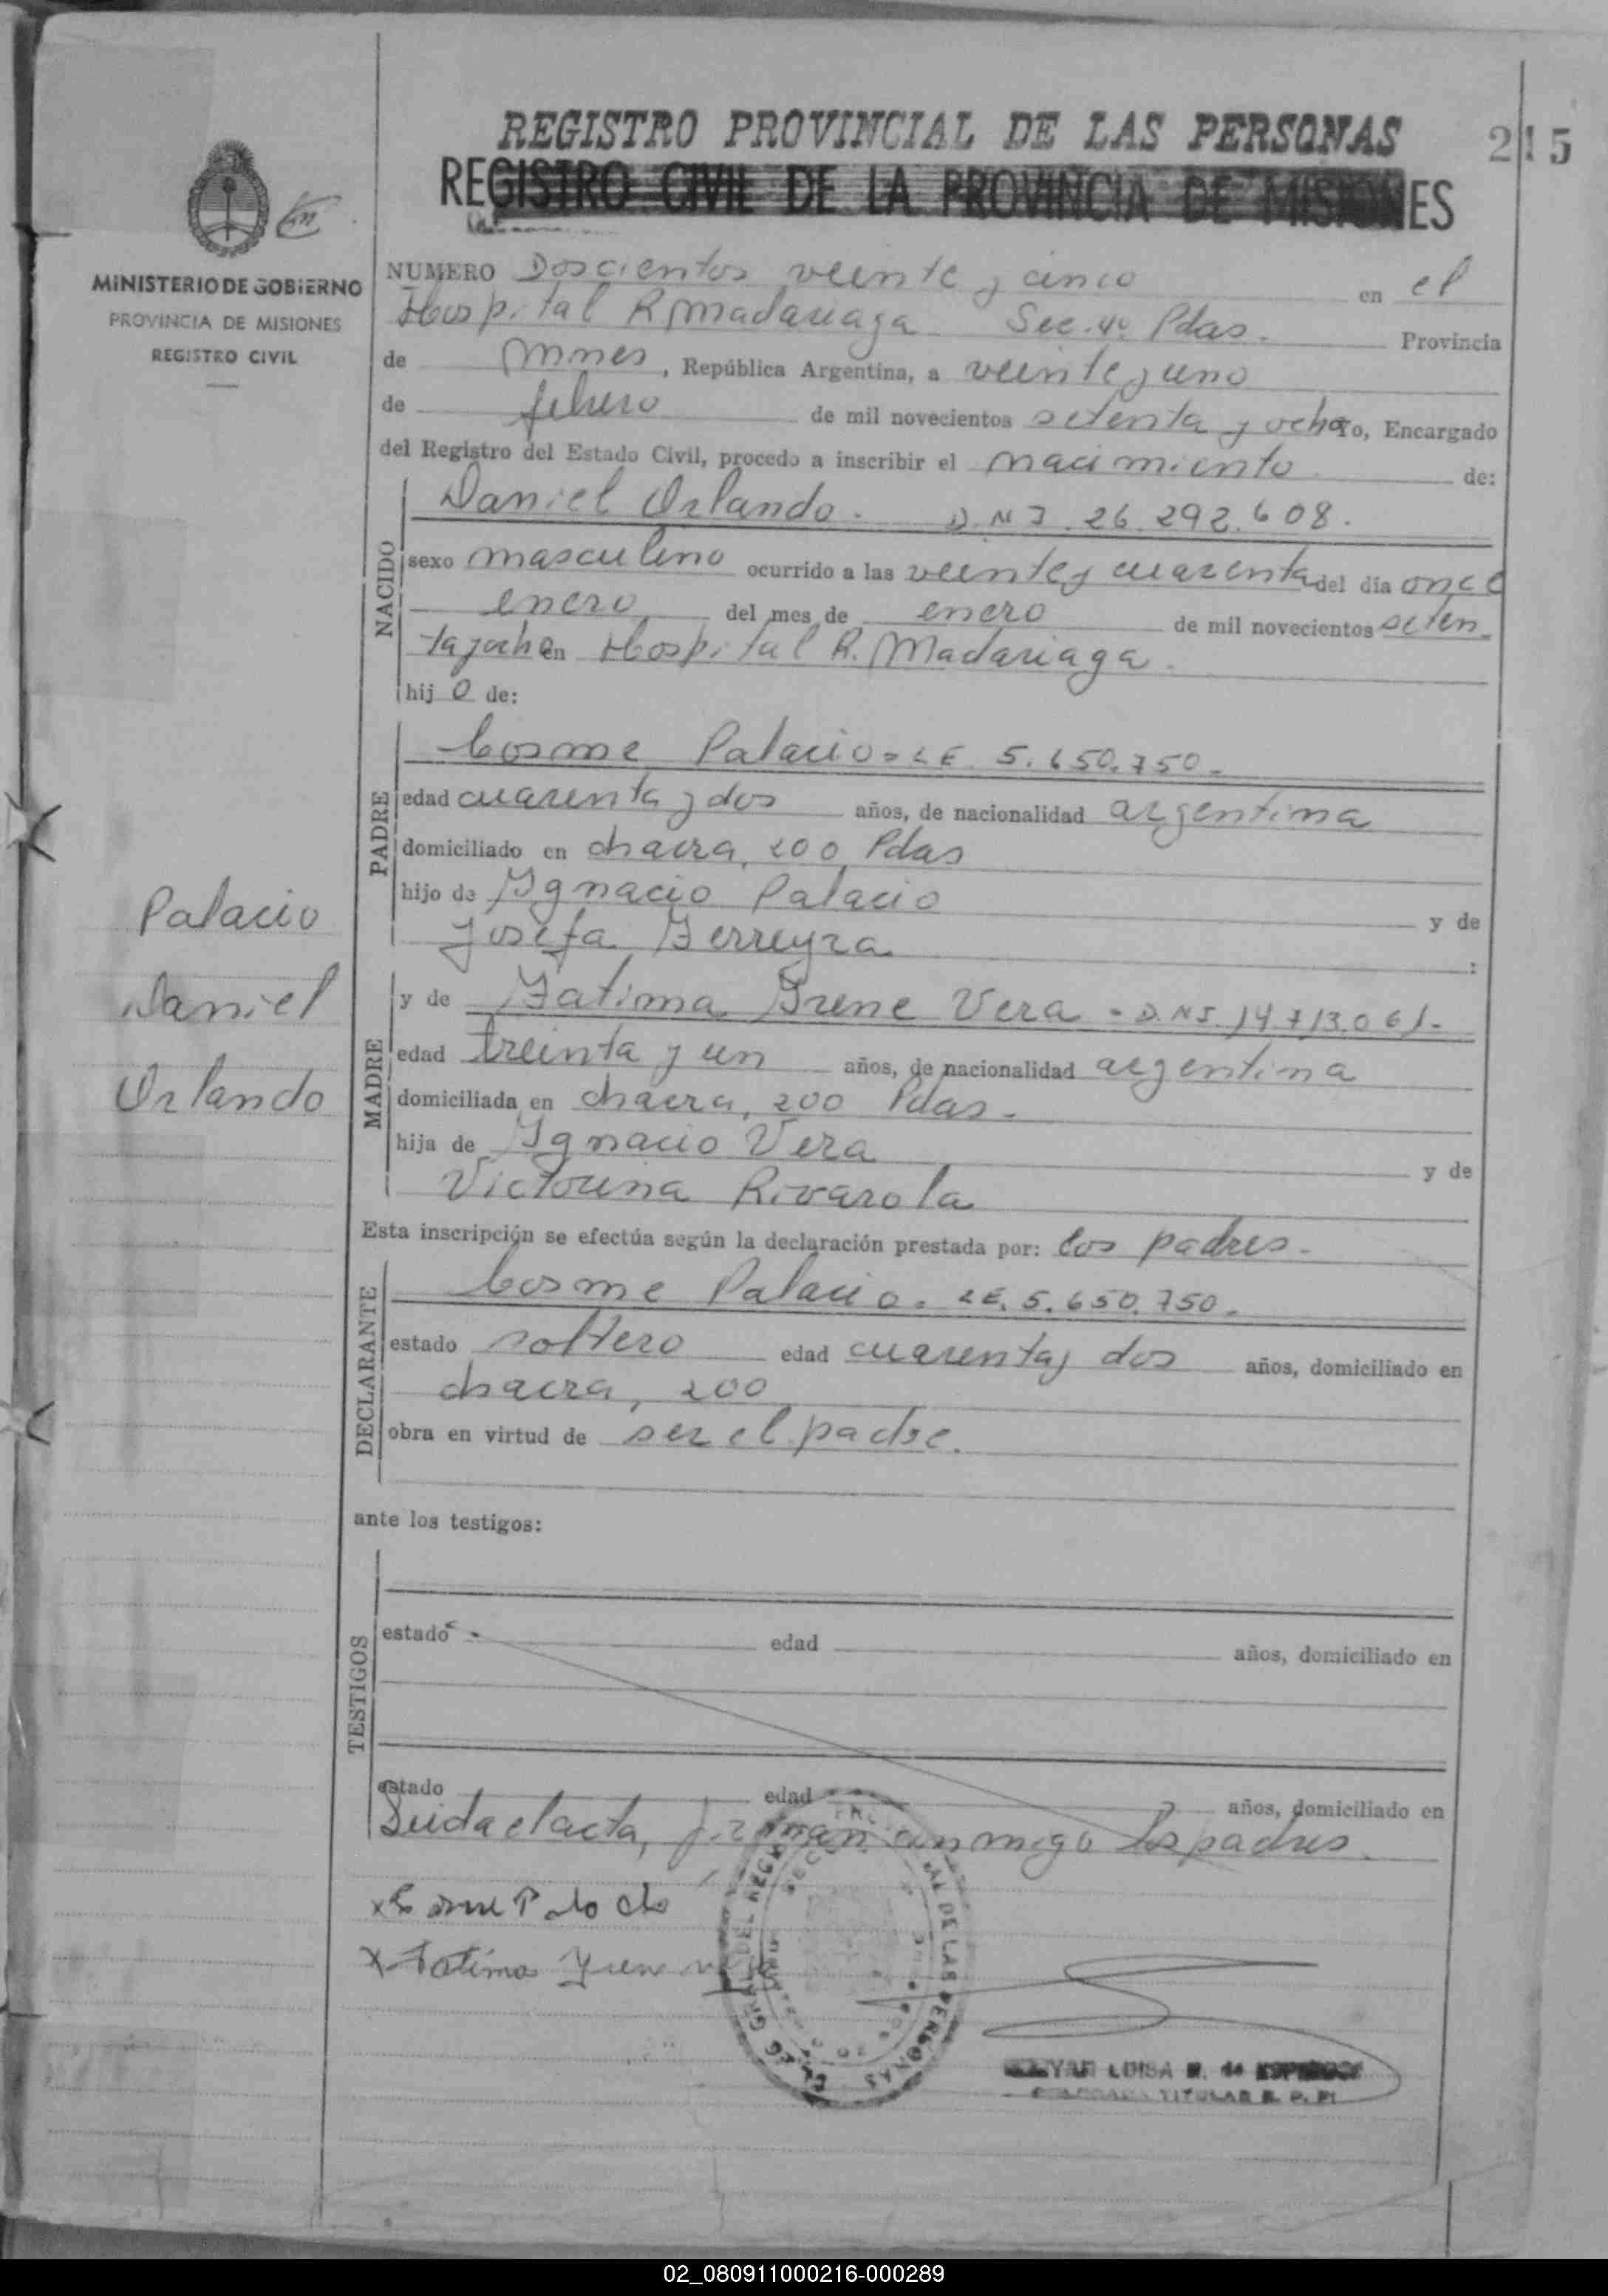 REGISTRO PROVINCIAL DE LAS PERSONAS
215
REGISTRO CIVIL DE LA PROVINCIA DE MISIONES
MINISTERIO DE GOBIERNO
PROVINCIA DE MISIONES
REGISTRO CIVIL
NUMERO Doscientos veinte y cinco en el
Hospital R Madariaga Sec. 4º Pdas. Provincia
de Mnes, República Argentina, a veinte y uno
de febrero de mil novecientos setenta y ocho Yo, Encargado
del Registro del Estado Civil, procedo a inscribir el nacimiento de:
NACIDO
Daniel Orlando. D.N.I. 26.292.608.
sexo masculino ocurrido a las veinte y cuarenta del día once
enero del mes de enero de mil novecientos seten
ta y ocho en Hospital R. Madariaga.
hijo de:
PADRE
Cosme Palacio = LE 5.650.750.
edad cuarenta y dos años, de nacionalidad argentina
domiciliado en chacra, 200 Pdas
hijo de Ignacio Palacio y de
Josefa Ferreyra :
MADRE
y de Fatima Irene Vera - D.N.I. 14.713.061.
edad treinta y un años, de nacionalidad argentina
domiciliada en chacra, 200 Pdas.
hija de Ignacio Vera y de
Victorina Rivarola
Palacio
Daniel
Orlando
Esta inscripción se efectúa según la declaración prestada por: los padres.
DECLARANTE
Cosme Palacio. LE. 5.650.750.
estado soltero edad cuarenta y dos años, domiciliado en
chacra, 200
obra en virtud de ser el padre.
ante los testigos:
TESTIGOS
estado edad años, domiciliado en
estado edad años, domiciliado en
Leida el acta, firman conmigo los padres.
x Cosme Palacio
x Fatima Yrene
LUISA
TITULAR R. P. P.
02_080911000216-000289